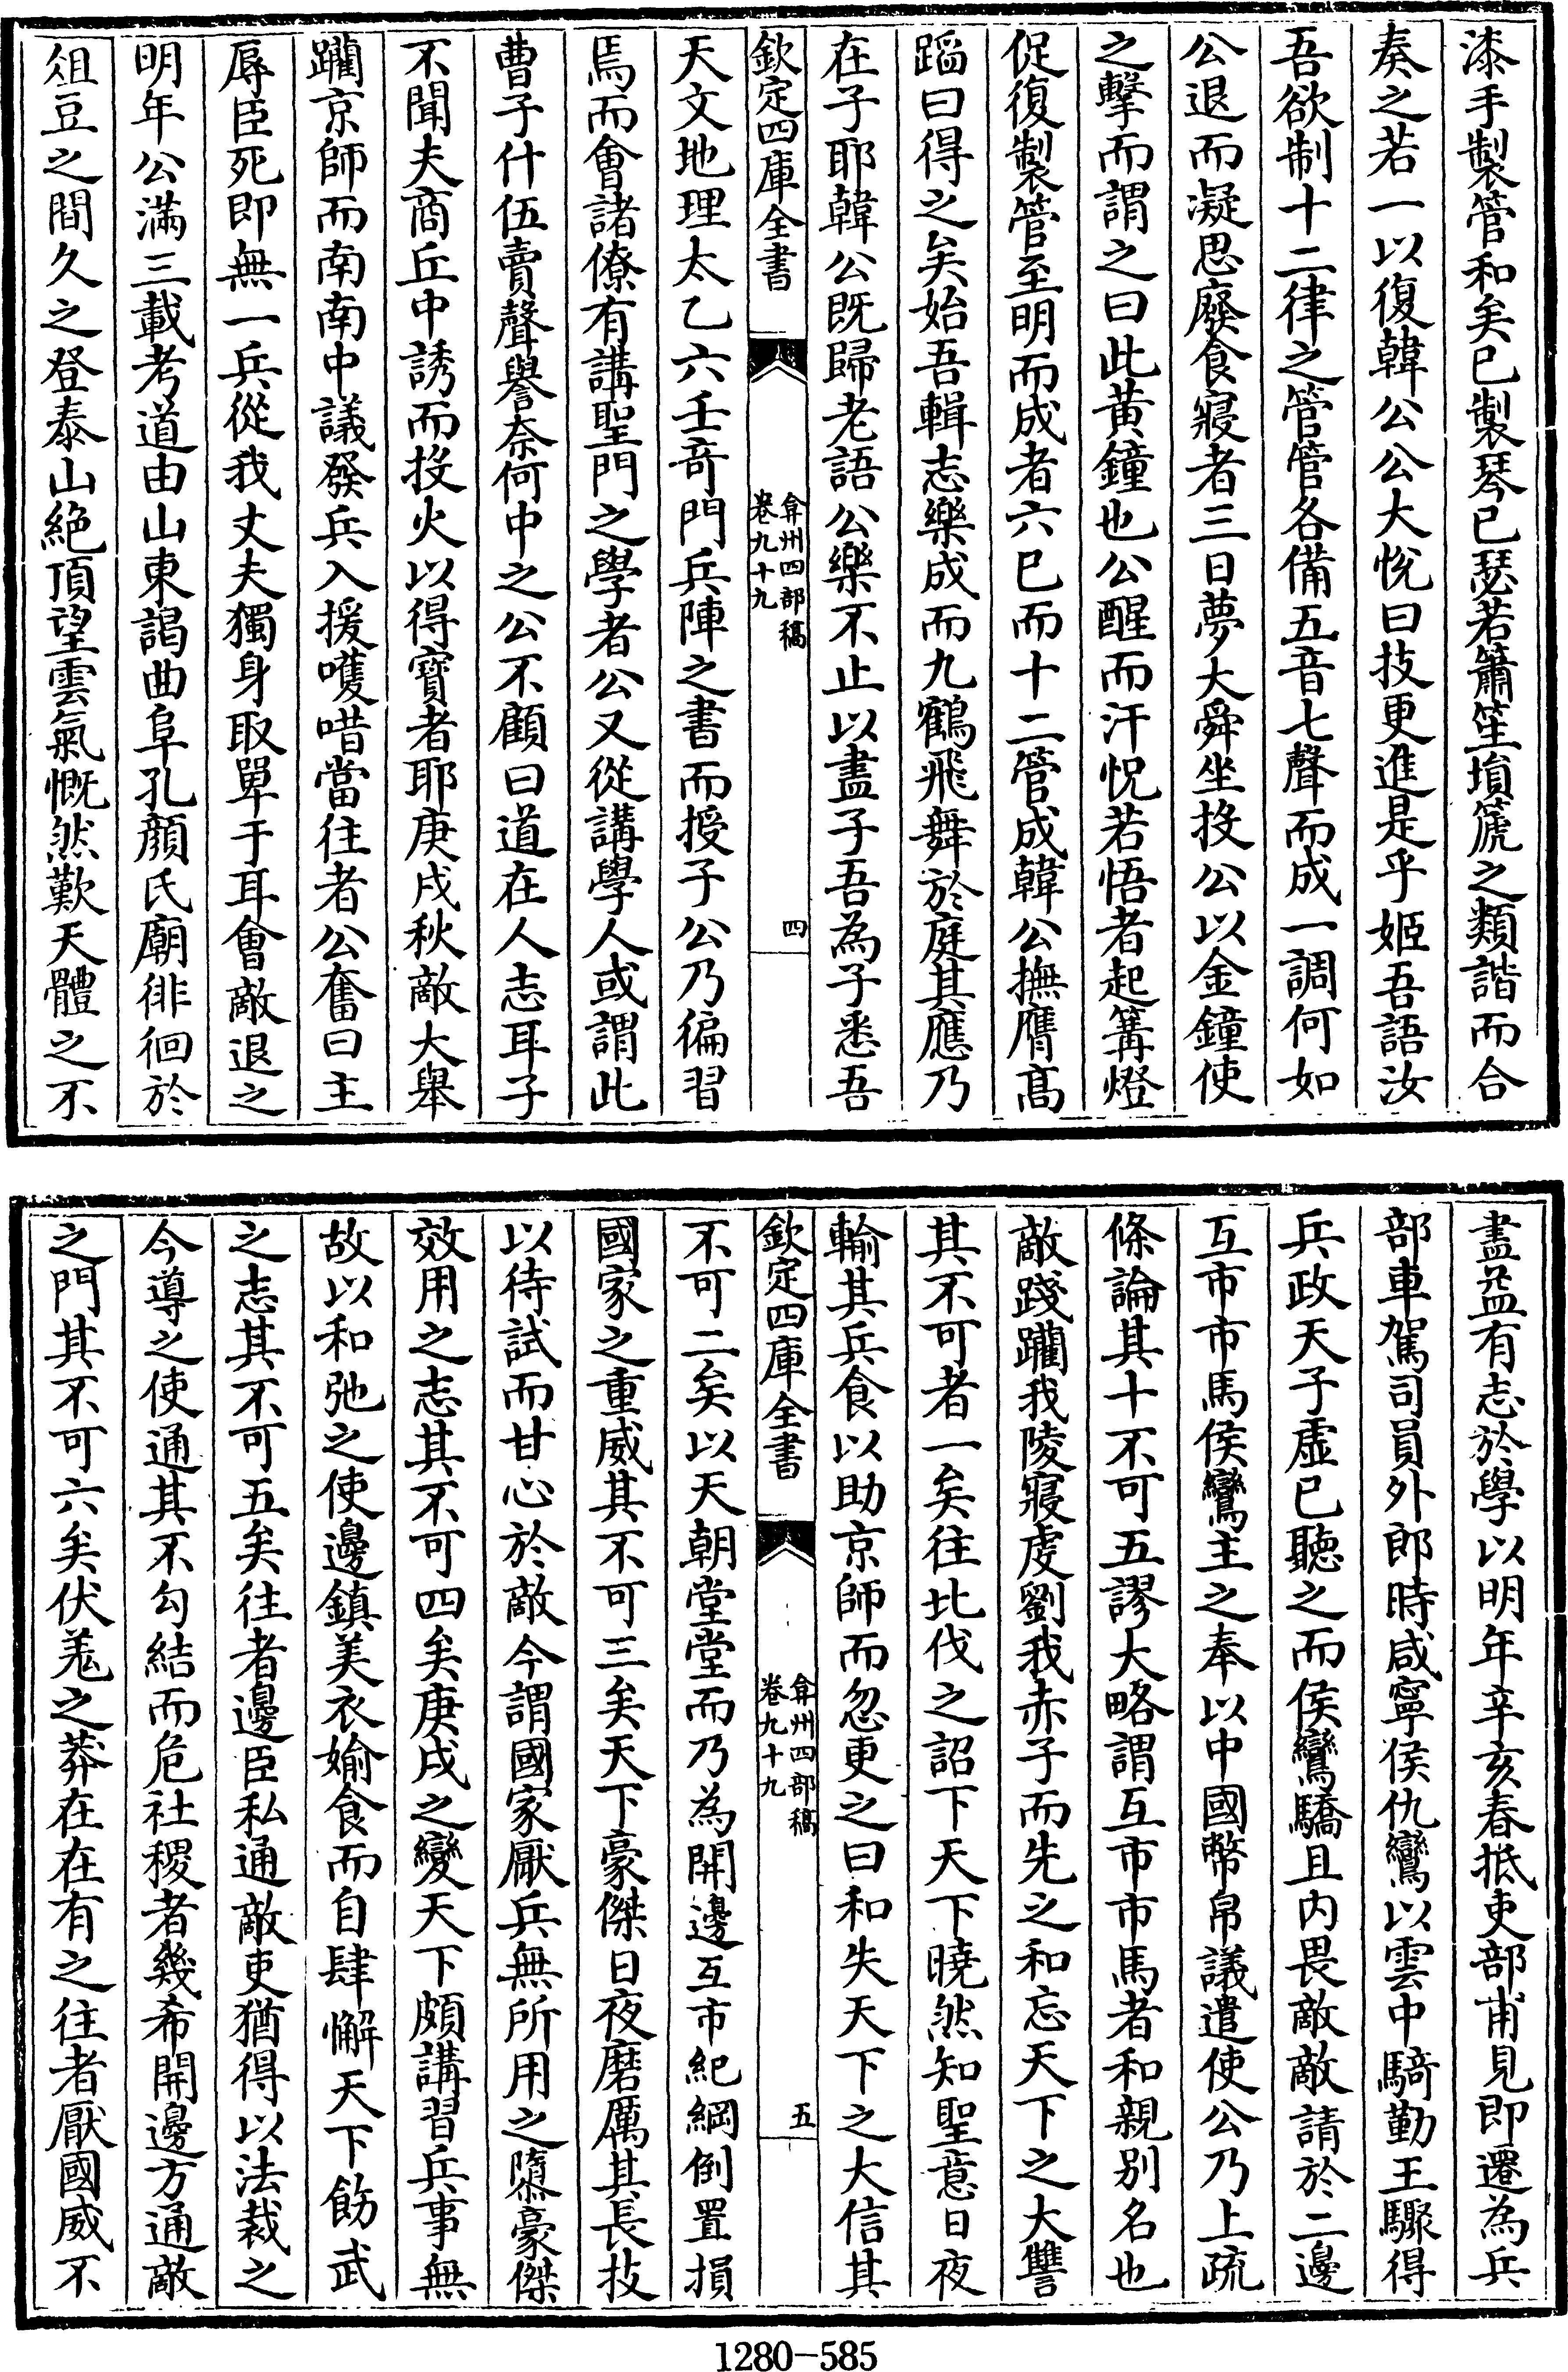 漆手製管和矣已製琴已瑟若簫笙塤箎之類諧而合
奏之若一以復韓公公大悅曰技更進是乎姬吾語汝
吾欲制十二律之管管各備五音七聲而成一調何如
公退而凝思廢食寢者三日夢大舜坐投公以金鐘使
之擊而謂之曰此黃鐘也公醒而汗怳若悟者起篝燈
促復製管至明而成者六已而十二管成韓公撫膺高
蹈曰得之矣始吾輯志樂成而九鶴飛舞於庭其應乃
在子耶韓公既歸老語公樂不止以盡子吾為子悉吾
欽定四庫全書
弇州四部稿
卷九十九
四
天文地理太乙六壬奇門兵陣之書而授子公乃徧習
焉而會諸僚有講聖門之學者公又從講學人或謂此
曹子什伍賣聲譽奈何中之公不顧曰道在人志耳子
不聞夫商丘中誘而投火以得寶者耶庚戌秋敵大舉
躪京師而南南中議發兵入援嚄唶當往者公奮曰主
辱臣死即無一兵從我丈夫獨身取單于耳會敵退之
明年公滿三載考道由山東謁曲阜孔顏氏廟徘徊於
俎豆之間久之登泰山絕頂望雲氣慨然歎天體之不
盡益有志於學以明年辛亥春抵吏部甫見即遷為兵
部車駕司員外郎時咸寧侯仇鸞以雲中騎勤王驟得
兵政天子虛已聽之而侯鸞驕且內畏敵敵請於二邊
互市市馬侯鸞主之奉以中國幣帛議遣使公乃上疏
條論其十不可五謬大略謂互市市馬者和親別名也
敵踐躪我陵寢虔劉我赤子而先之和忘天下之大讐
其不可者一矣往北伐之詔下天下曉然知聖意日夜
輸其兵食以助京師而忽更之曰和失天下之大信其
欽定四庫全書
弇州四部稿
卷九十九
五
不可二矣以天朝堂堂而乃為開邊互市紀綱倒置損
國家之重威其不可三矣天下豪傑日夜磨厲其長技
以待試而甘心於敵今謂國家厭兵無所用之隳豪傑
效用之志其不可四矣庚戌之變天下頗講習兵事無
故以和弛之使邊鎮美衣媮食而自肆懈天下飭武
之志其不可五矣往者邊臣私通敵吏猶得以法裁之
今導之使通其不勾結而危社稷者幾希開邊方通敵
之門其不可六矣伏羗之莽在在有之往者厭國威不
1280-585